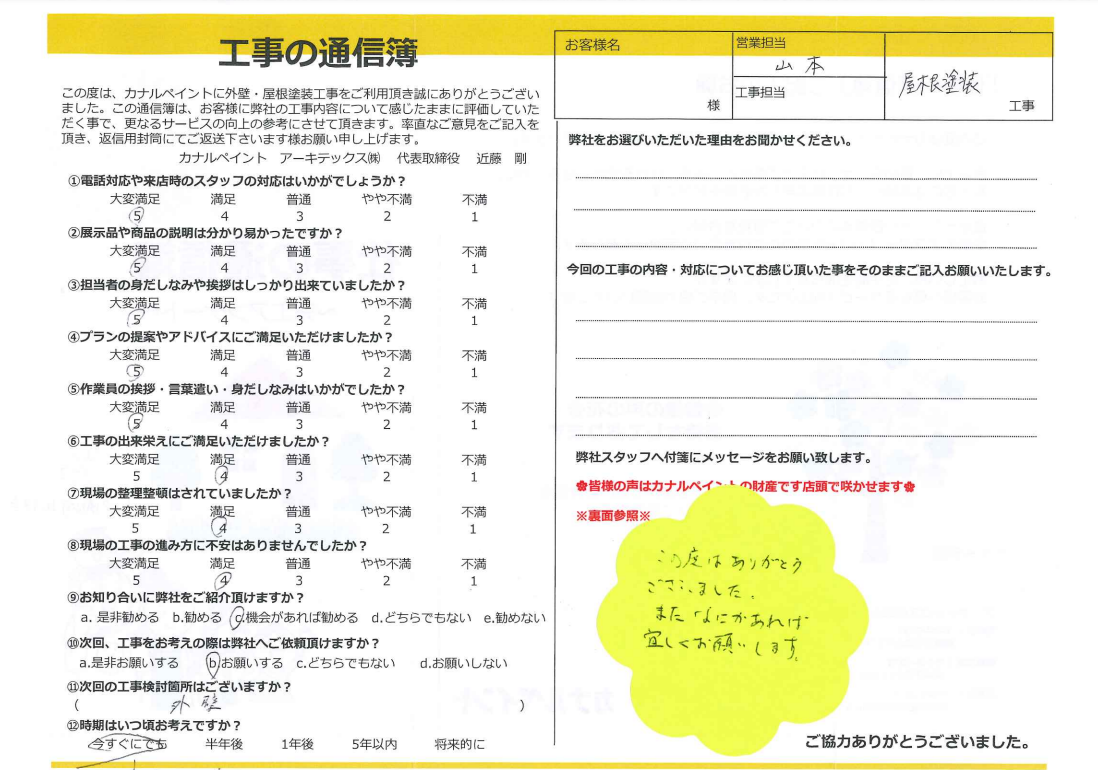 工事の通信簿
この度は、カナルペイントに外壁・屋根塗装工事をご利用頂き誠にありがとうござい
ました。この通信簿は、お客様に弊社の工事内容について感じたままに評価していた
だく事で、更なるサービスの向上の参考にさせて頂きます。率直なご意見をご記入を
頂き、返信用封筒にてご返送下さいます様お願い申し上げます。
カナルペイント アーキテックス㈱ 代表取締役 近藤 剛
①電話対応や来店時のスタッフの対応はいかがでしょうか？
大変満足 満足 普通 やや不満 不満
5 4 3 2 1
②展示品や商品の説明は分かり易かったですか？
大変満足 満足 普通 やや不満 不満
5 4 3 2 1
③担当者の身だしなみや挨拶はしっかり出来ていましたか？
大変満足 満足 普通 やや不満 不満
5 4 3 2 1
④プランの提案やアドバイスにご満足いただけましたか？
大変満足 満足 普通 やや不満 不満
5 4 3 2 1
⑤作業員の挨拶・言葉遣い・身だしなみはいかがでしたか？
大変満足 満足 普通 やや不満 不満
5 4 3 2 1
⑥工事の出来栄えにご満足いただけましたか？
大変満足 満足 普通 やや不満 不満
5 4 3 2 1
⑦現場の整理整頓はされていましたか？
大変満足 満足 普通 やや不満 不満
5 4 3 2 1
⑧現場の工事の進み方に不安はありませんでしたか？
大変満足 満足 普通 やや不満 不満
5 4 3 2 1
⑨お知り合いに弊社をご紹介頂けますか？
a. 是非勧める b.勧める c.機会があれば勧める d.どちらでもない e.勧めない
⑩次回、工事をお考えの際は弊社へご依頼頂けますか？
a.是非お願いする b.お願いする c.どちらでもない d.お願いしない
⑪次回の工事検討箇所はございますか？
( 外壁 )
⑫時期はいつ頃お考えですか？
今すぐにでも 半年後 1年後 5年以内 将来的に
お客様名
様
営業担当
山本
工事担当
屋根塗装
工事
弊社をお選びいただいた理由をお聞かせください。
今回の工事の内容・対応についてお感じ頂いた事をそのままご記入お願いいたします。
弊社スタッフへ付箋にメッセージをお願い致します。
✿皆様の声はカナルペイントの財産です店頭で咲かせます✿
※裏面参照※
この度はありがとう
ございました。
またなにかあれば
宜しくお願いします。
ご協力ありがとうございました。